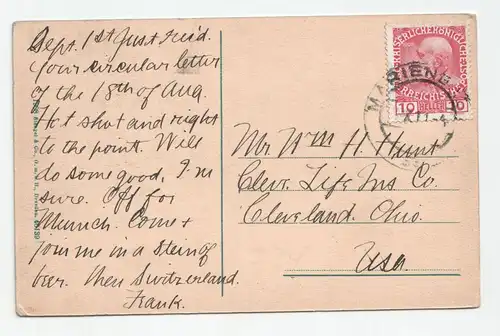 Sept. 1st Just rec'd.
your circular letter
of the 18th of Aug.
Hot shot and right
to the point. Will
do some good, I'm
sure. Off for
Munich. Come &
join me in a Stein of
beer. Then Switzerland.
Frank.
KAISERLICHE KÖNIGLICHE
ÖSTERREICHISCHE
10 HELLER 10
MARIENB
Mr Wm H. Hunt
Clev. Life Ins Co.
Cleveland, Ohio.
Usa.